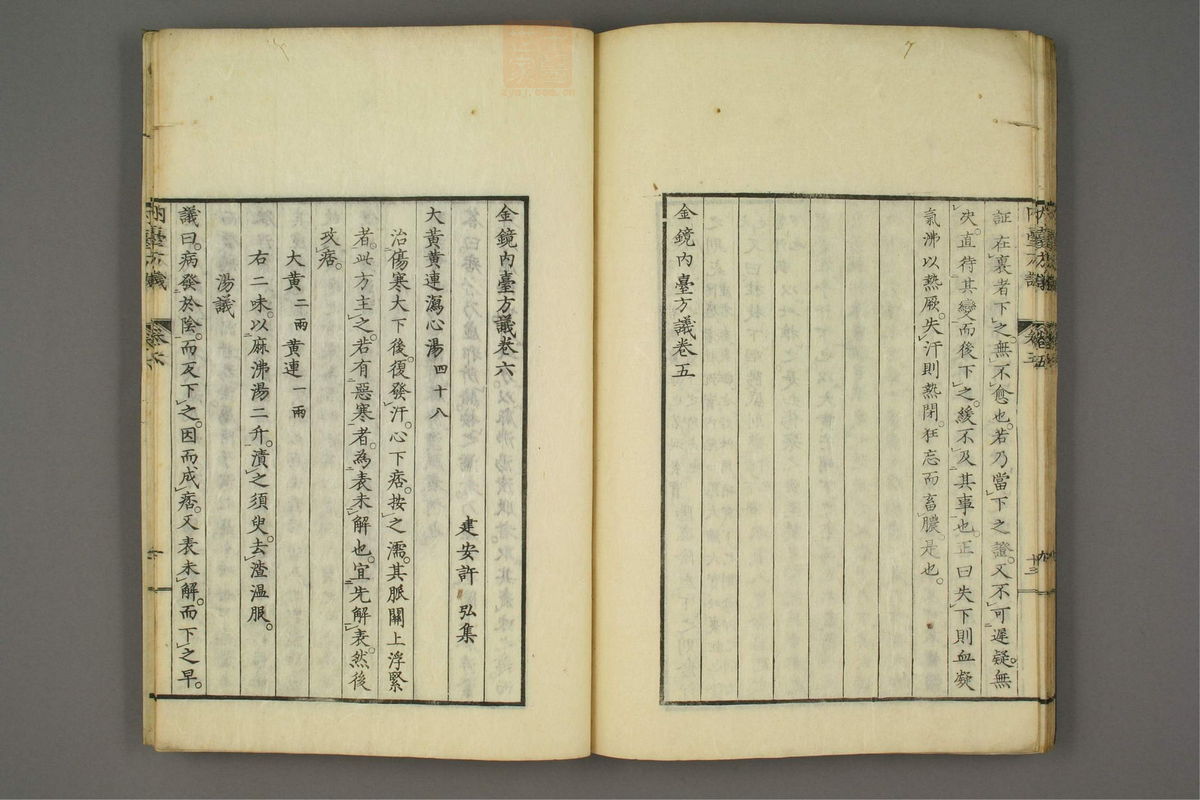 証在裏者下之無不愈也若乃當下之證又不可遲疑無
次直待其變而後下之緩不及其事也正曰失下則血凝
氣沸以熱厥失汗則熱閉狂忘而畜膿是也
金鏡內臺方議卷五
金鏡內臺方議卷六
建安許弘集
大黃黃連瀉心湯四十八
治傷寒大下後復發汗心下痞按之濡其脈關上浮緊
者此方主之若有惡寒者為表未解也宜先解表然後
攻痞
大黃二兩黃連一兩
右二味以麻沸湯二升漬之須臾去渣溫服
湯議
議曰病發於陰而反下之因而成痞又表未解而下之早